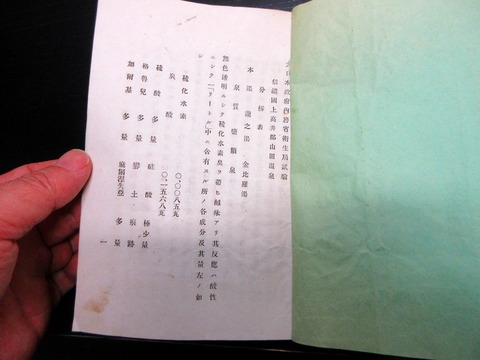 大日本政府内務省衛生局試験
信濃國上高井郡山田温泉
分析表
本湯 瀧之湯 金比羅湯
泉質 塩類泉
無色透明ニシテ硫化水素臭ヲ帯ヒ鹹味アリ其反應ハ酸性
ニシテ一「リートル」中ニ含有スル所ノ各成分及其量左ノ如
シ
硫化水素 〇、〇〇八五瓦
炭酸 〇、一五六八瓦
硫酸 多量 硅酸 極少量
格魯兒 多量 礬土 痕跡
加爾基 多量 麻倔涅失亞 多量
一